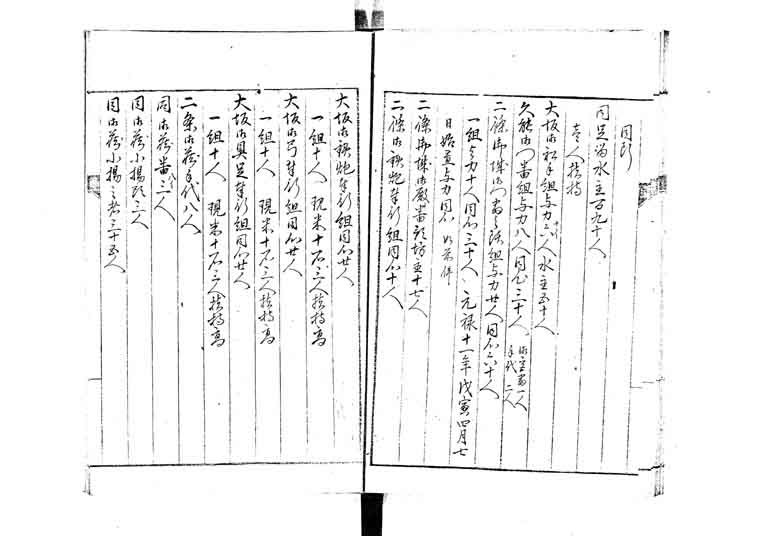 同断
同足留水主百九十人
壱人扶持
大坂御船手組与力六人水主五十人
久能御門番組与力八人同心三十人 御金番一人 手代二人
二条御城御門番之頭組与力廿人同心六十人
一組与力十人同心三十人 元禄十一年戊寅四月七
日始置与力同心如前件
二条御城御殿番頭坊主十七人
二条御鉄炮奉行組同心十人
大坂御鉄炮奉行組同心廿人
一組十人 現米十石三人扶持高
大坂御弓奉行組同心廿人
一組十人 現米十石三人扶持高
大坂御具足奉行組同心廿人
一組十人 現米十石三人扶持高
二条御蔵手代八人
同御蔵番三人
同御蔵小揚頭三人
同御蔵小揚之者三十五人